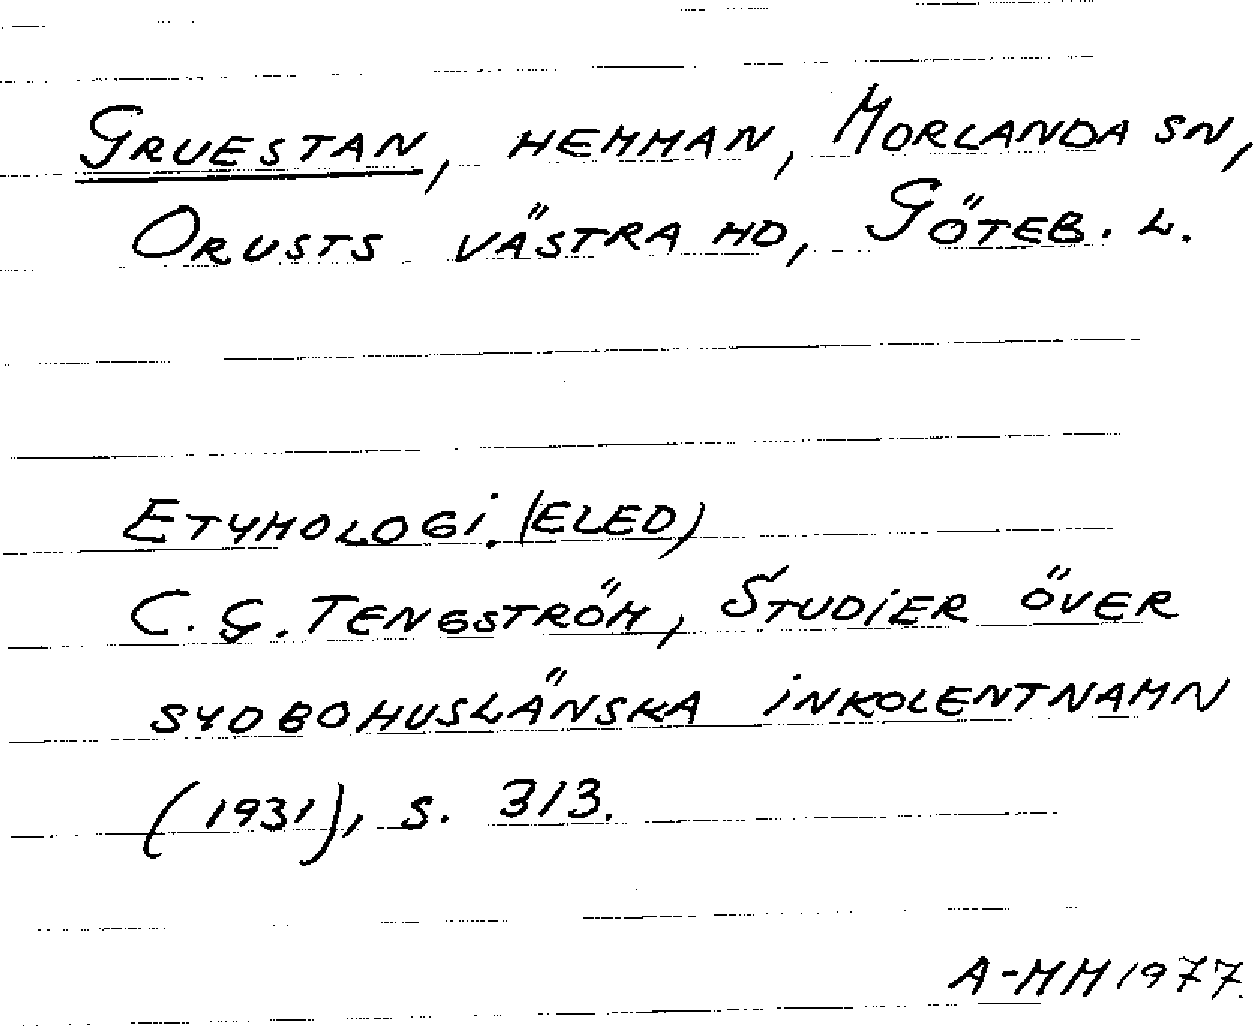 GRUESTAN, HEMMAN, MORLANDA SN,
ORUSTS VÄSTRA HD, GÖTEB. L.
ETYMOLOGI. (ELED)
C. G. TENGSTRÖM, STUDIER ÖVER
SYDBOHUSLÄNSKA INKOLENTNAMN
(1931), S. 313.
A-MM 1977.